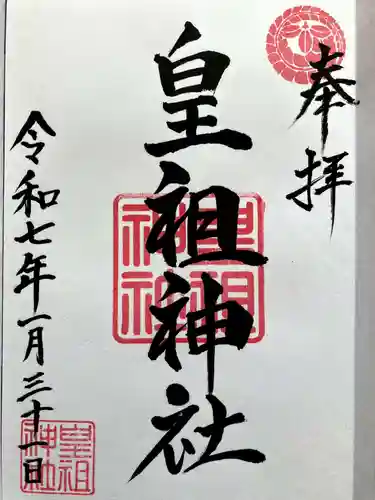 奉拝
皇祖神社
令和七年一月三十一日
皇祖
神社
皇祖
神社